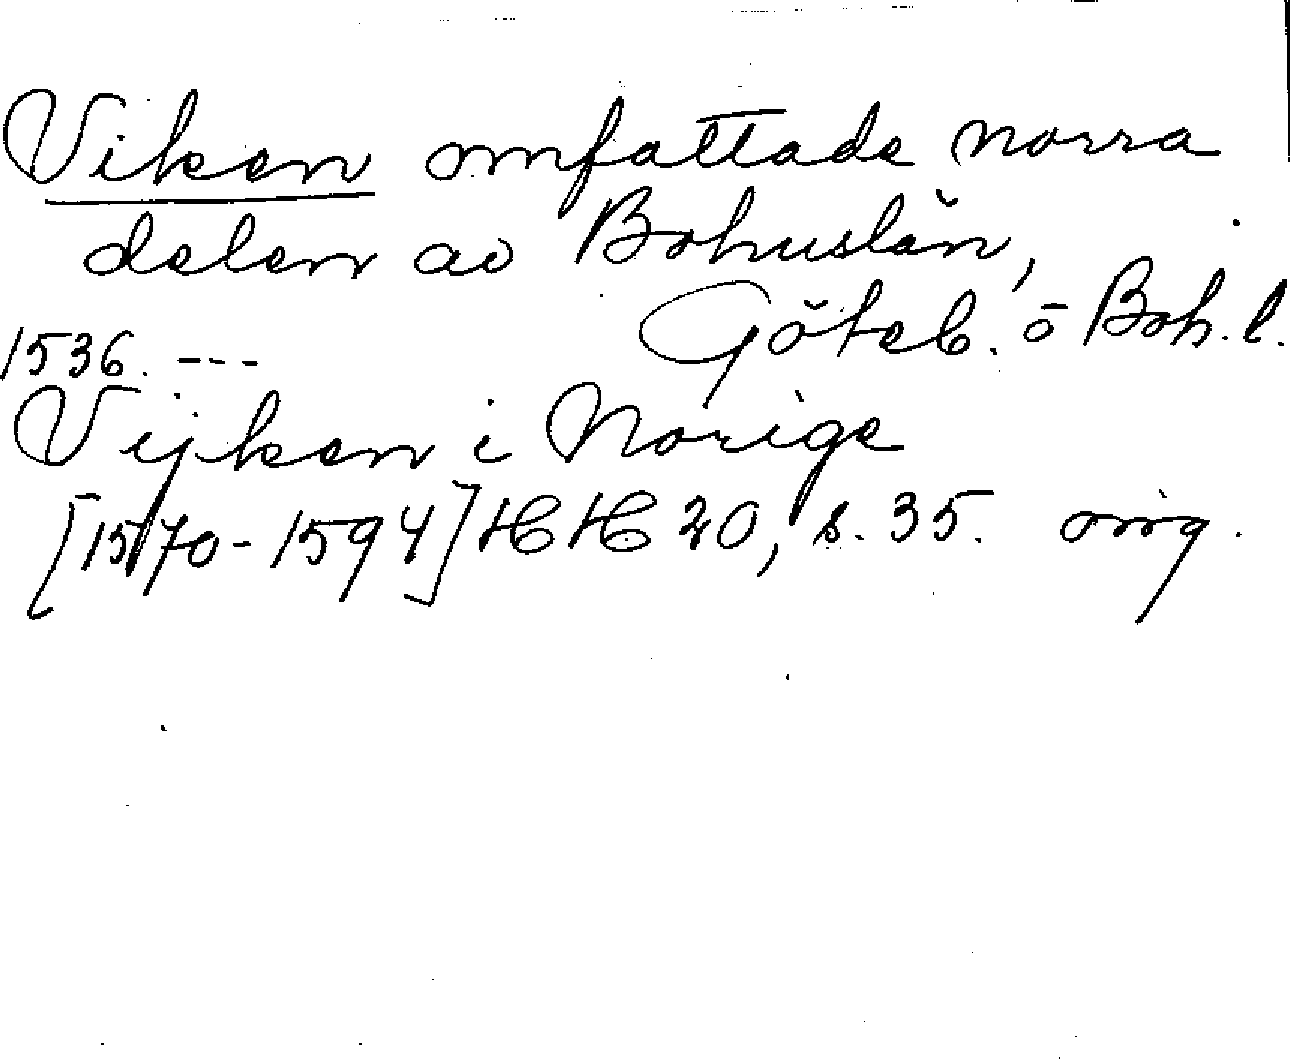 Viken omfattade norra
delen av Bohuslän,
Göteb. o Boh. l.
1536. ---
Vijken i Norige
[1570-1594] HH 20, s. 35. orig.